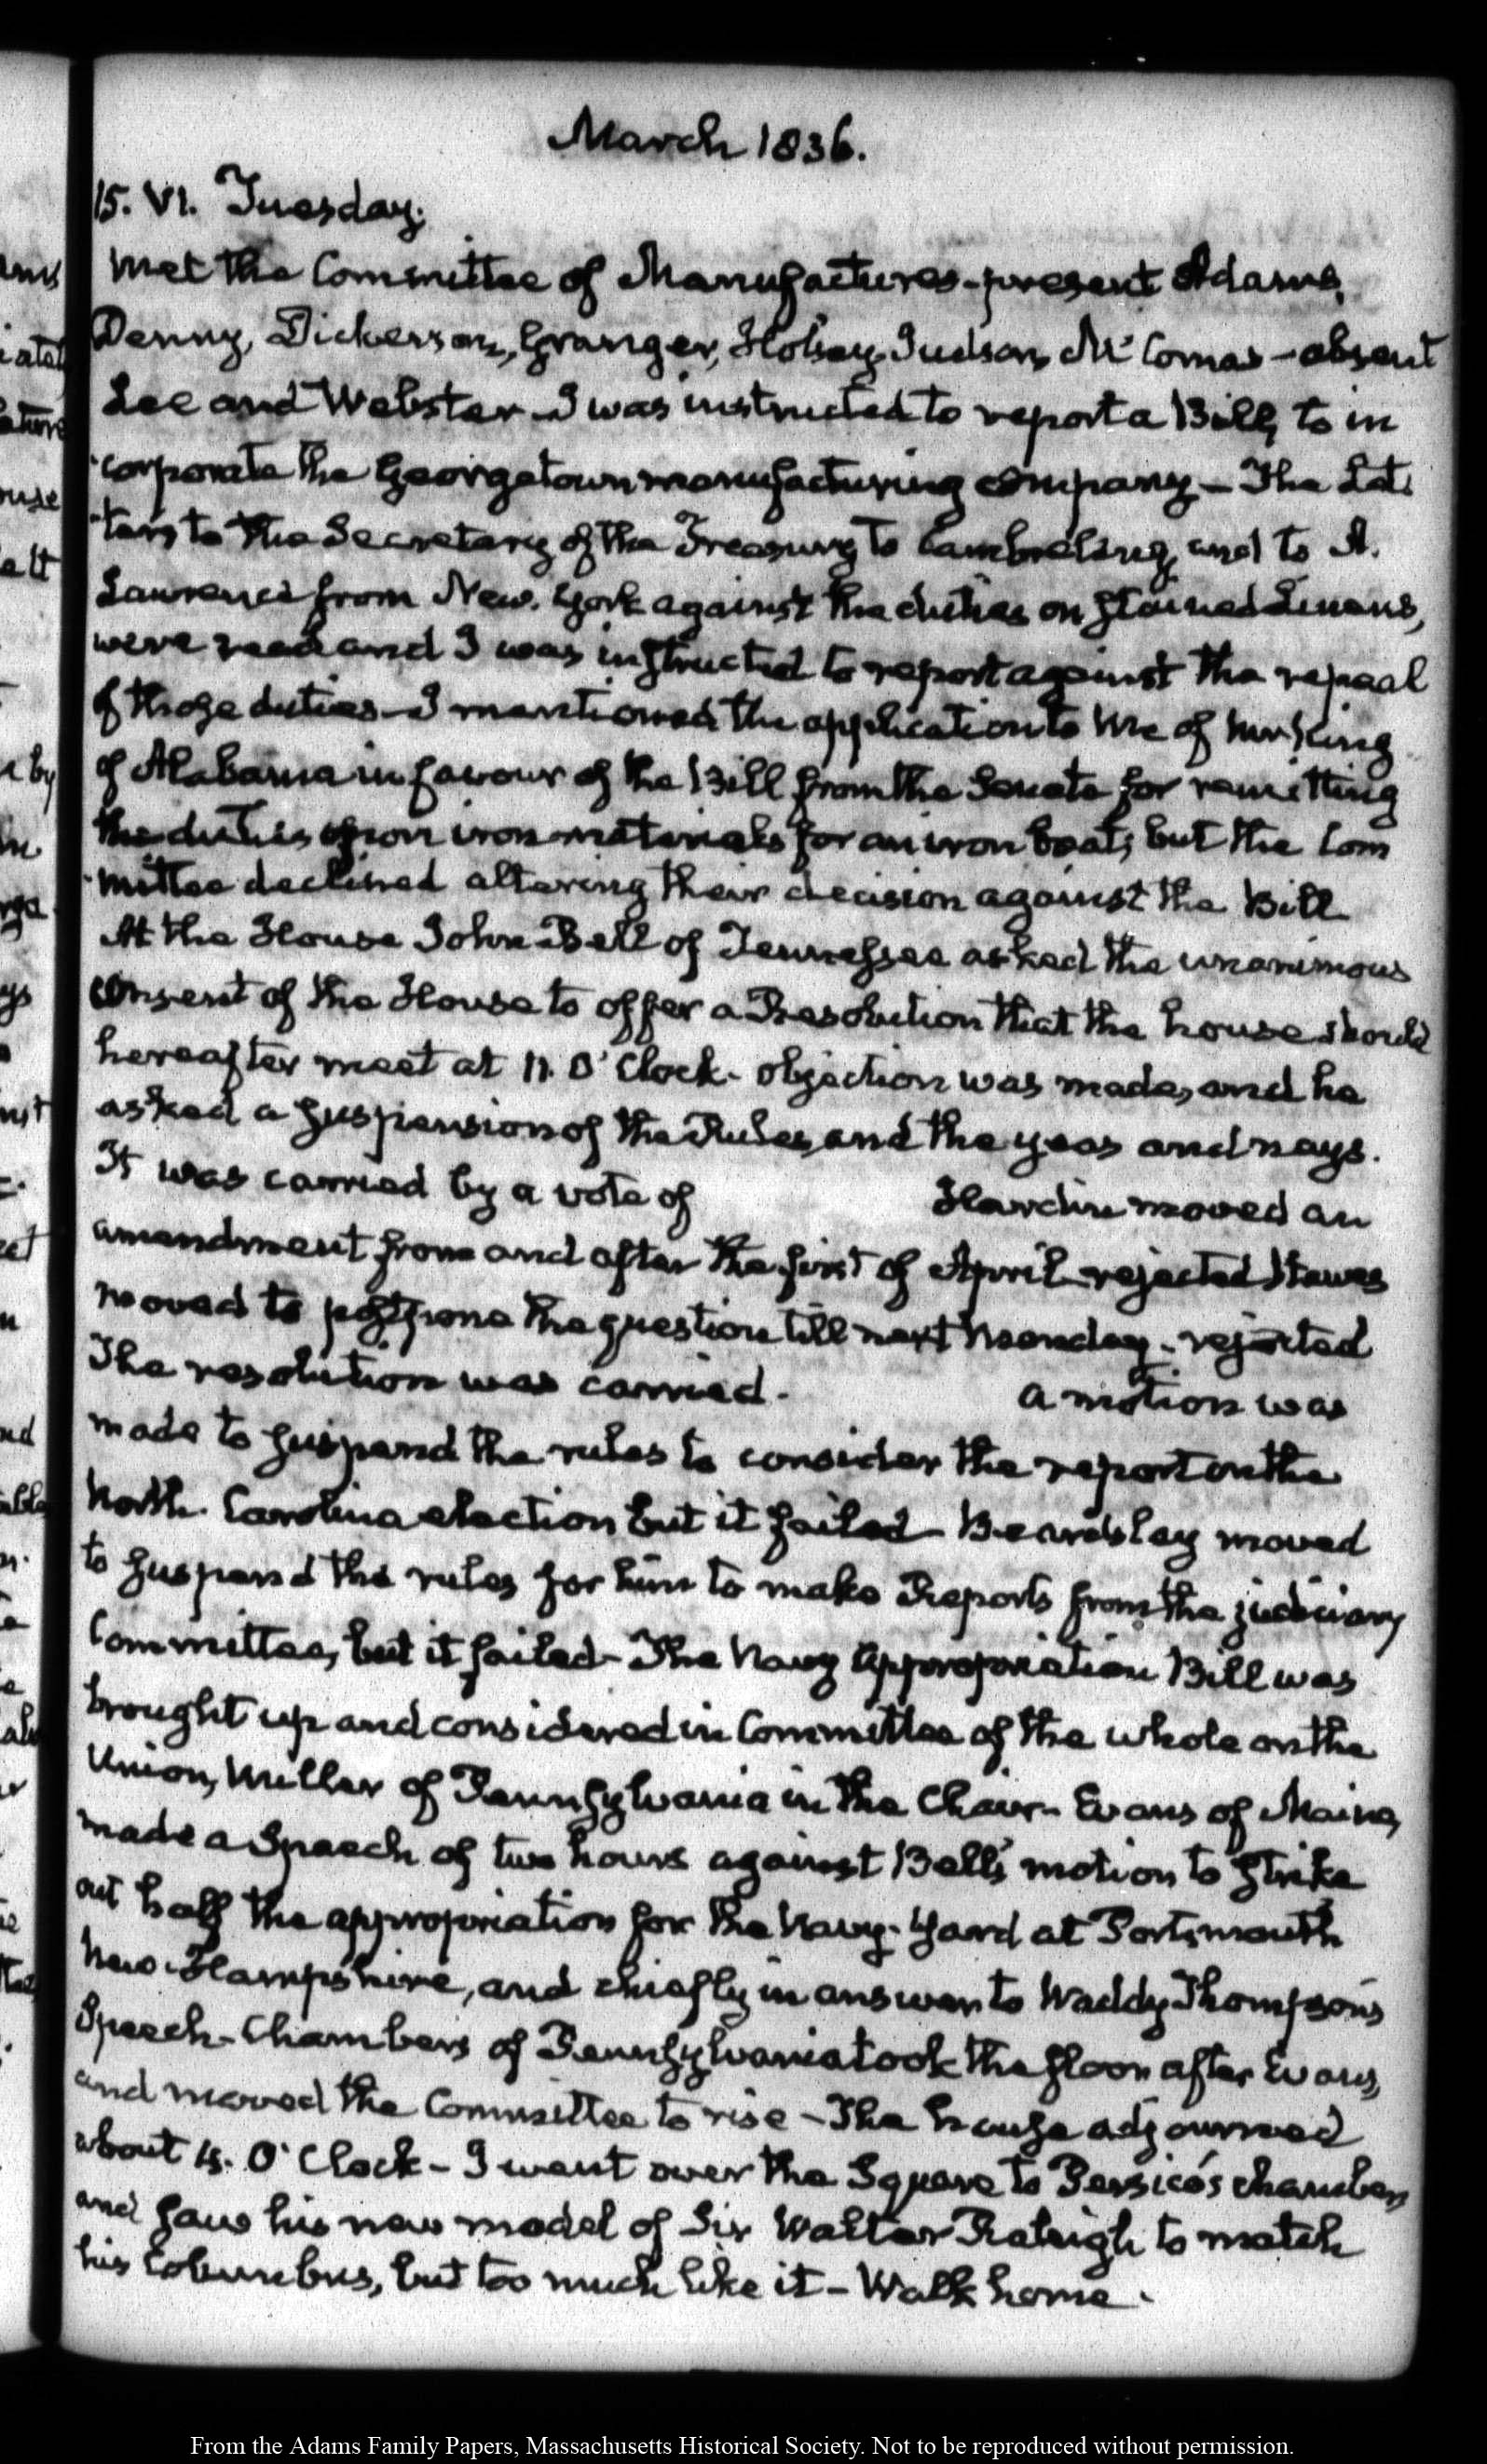 March 1836.
15. VI. Tuesday.
Met the Committee of Manufactures - present Adams,
Denny, Dickerson, Granger, Halsey, Judson, McComas - absent
Lee and Webster - I was instructed to report a Bill, to in
corporate the Georgetown manufacturing company - The Let
ters to the Secretary of the Treasury, to Cambreleng, and to A.
Lawrence from New-York against the duties on stained Linens,
were read and I was instructed to report against the repeal
of those duties - I mentioned the application to me of Mr King
of Alabama in favour of the Bill from the Senate for remitting
the duties upon iron materials for an iron boat; but the Com
mittee declined altering their decision against the Bill
At the House John Bell of Tennessee asked the unanimous
consent of the House to offer a Resolution that the house should
hereafter meet at 11. O'Clock - objection was made, and he
asked a suspension of the Rules, and the yeas and nays.
It was carried by a vote of Hardin moved an
amendment from and after the first of April - rejected Hawes
moved to postpone the question till next Monday - rejected
The resolution was carried. a motion was
made to suspend the rules to consider the report on the
North-Carolina election but it failed - Beardsley moved
to suspend the rules for him to make Reports from the judiciary
Committee, but it failed - The Navy appropriation Bill was
brought up and considered in Committee of the whole on the
Union, Miller of Pennsylvania in the Chair - Evans of Maine,
made a Speech of two hours against Bell's motion to strike
out half the appropriation for the Navy-Yard at Portsmouth
New-Hampshire, and chiefly in answer to Waddy Thompson's
Speech - Chambers of Pennsylvania took the floor after Evans,
and moved the Committee to rise - The house adjourned
about 4. O'Clock - I went over the Square to Persico's chamber,
and saw his new model of Sir Walter Raleigh to match
his Columbus, but too much like it - Walk home.
From the Adams Family Papers, Massachusetts Historical Society. Not to be reproduced without permission.